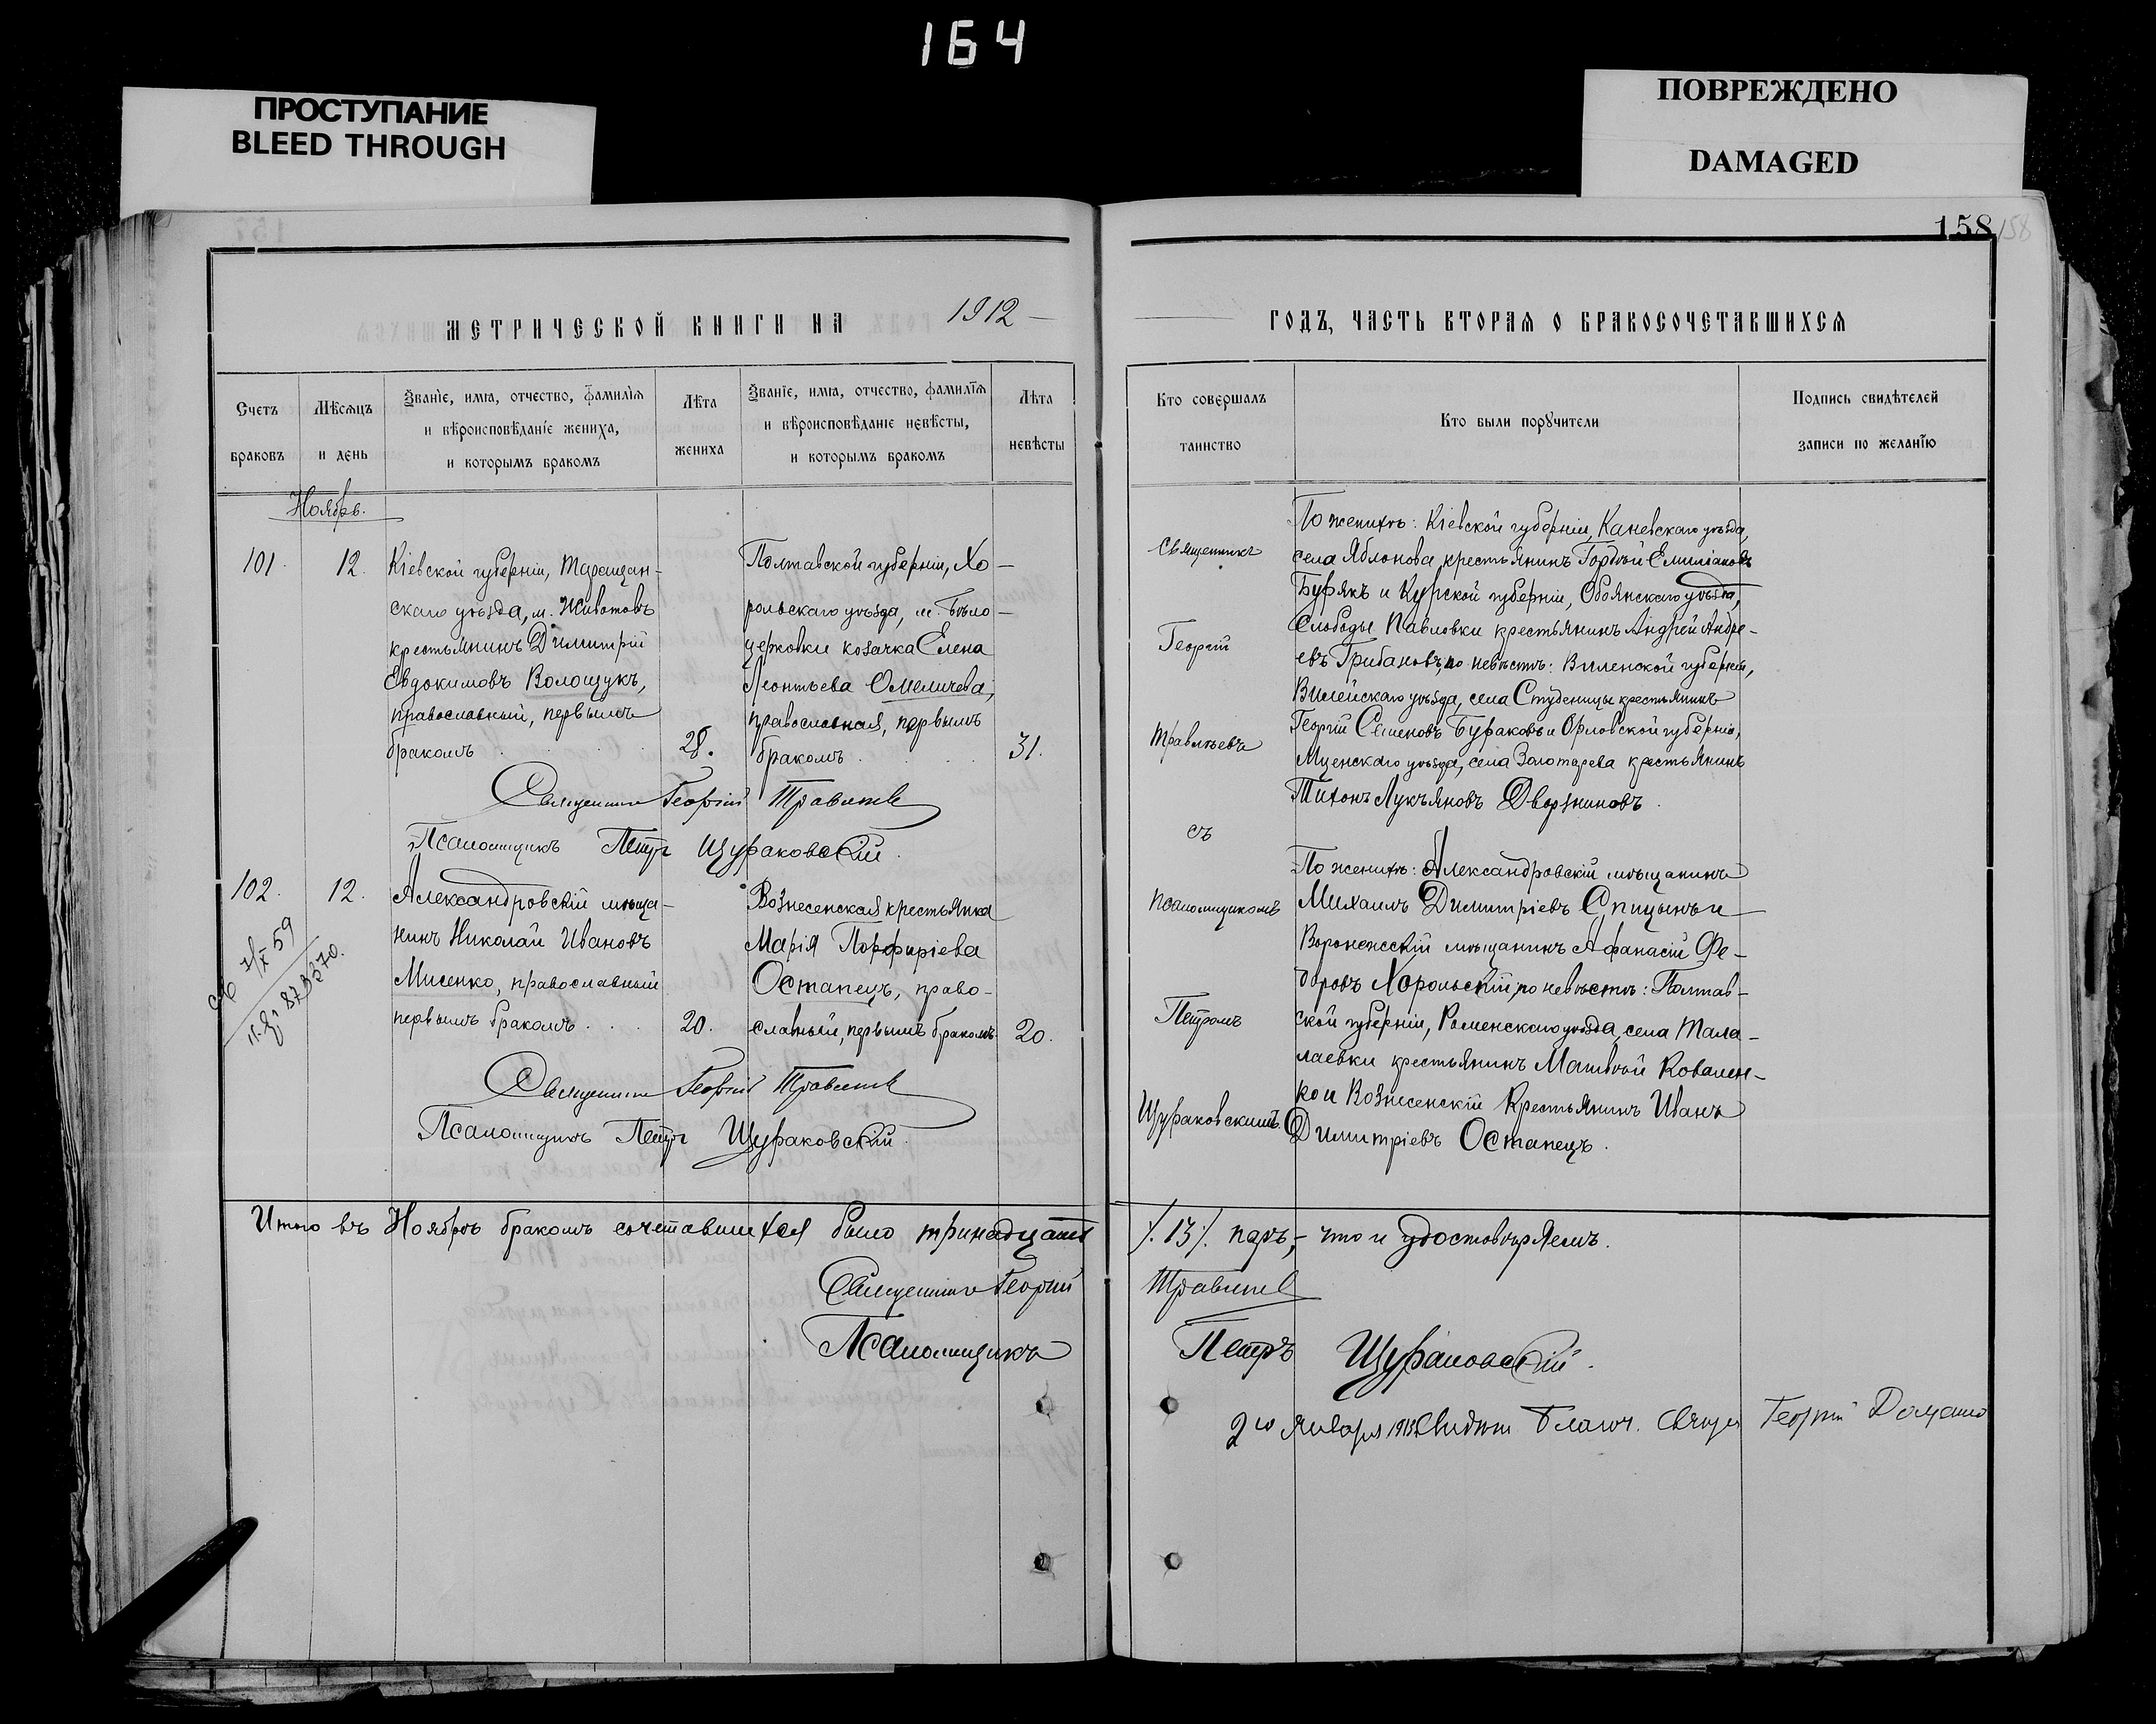 164
ПРОСТУПАНИЕ
BLEED THROUGH
ПОВРЕЖДЕНО
DAMAGED
158 158
МЕТРИЧЕСКОЙ КНИГИ НА 1912
Счетъ браковъ
Мѣсяцъ и день
Званіе, имя, отчество, фамилія
и вѣроисповѣданіе жениха,
и которымъ бракомъ
Лѣта жениха
Званіе, имя, отчество, фамилія
и вѣроисповѣданіе невѣсты,
и которымъ бракомъ
Лѣта невѣсты
Ноябрь.
101. 12.
Кіевской губерніи, Таращан-
скаго уѣзда, м. Животовъ
крестьянинъ Димитрій
Евдокимовъ Волощукъ,
православный, первымъ
бракомъ 28.
Полтавской губерніи, Хо-
рольскаго уѣзда, м. Бѣло-
церковки козачка Елена
Леонтьева Омеличева,
православная, первымъ
бракомъ 31.
Священникъ Георгій Травинъ
Псаломщикъ Петръ Щураковскій.
102. 12.
Александровскій мѣща-
нинъ Николай Ивановъ
Мисенко, православный
первымъ бракомъ 20.
Вознесенская крестьянка
Марія Порфиріева
Остапецъ, право-
славный, первымъ бракомъ 20.
Священникъ Георгій
Псаломщикъ Петръ Щураковскій.
Итого въ Ноябрѣ бракомъ сочетавшихся было тринадцать
Священникъ Георгій
Псаломщикъ
ГОДЪ, ЧАСТЬ ВТОРАЯ О БРАКОСОЧЕТАВШИХСЯ
Кто совершалъ таинство
Кто были поручители
Подпись свидѣтелей
записи по желанію
Священникъ
Георгій
съ
псаломщикомъ
Петромъ
Щураковскимъ.
По женихѣ: Кіевской губерніи, Каневскаго уѣзда,
села Яблонова крестьянинъ Гордѣй Емиліановъ
Бурякъ и Курской губерніи, Обоянскаго уѣзда,
Слободы Павловки крестьянинъ Андрей Андре-
евъ Грибановъ, по невѣстѣ: Виленской губерніи,
Вилейскаго уѣзда, села Студеницы крестьянинъ
Георгій Семеновъ Бураковъ и Орловской губерніи,
Мценскаго уѣзда, села Золотарева крестьянинъ
Тихонъ Лукьяновъ Дворниковъ.
По женихѣ: Александровскій мѣщанинъ
Михаилъ Димитріевъ Спицынъ и
Воронежскій мѣщанинъ Афанасій Фе-
доровъ Хорольскій, по невѣстѣ: Полтав-
ской губерніи, Роменскаго уѣзда, села Тала-
лаевки крестьянинъ Матвѣй Ковален-
ко и Вознесенскій Крестьянинъ Иванъ
Димитріевъ Остапецъ.
/.13/. паръ, - что и удостовѣряемъ.
Петръ Щураковскій.
2го Января Георгій